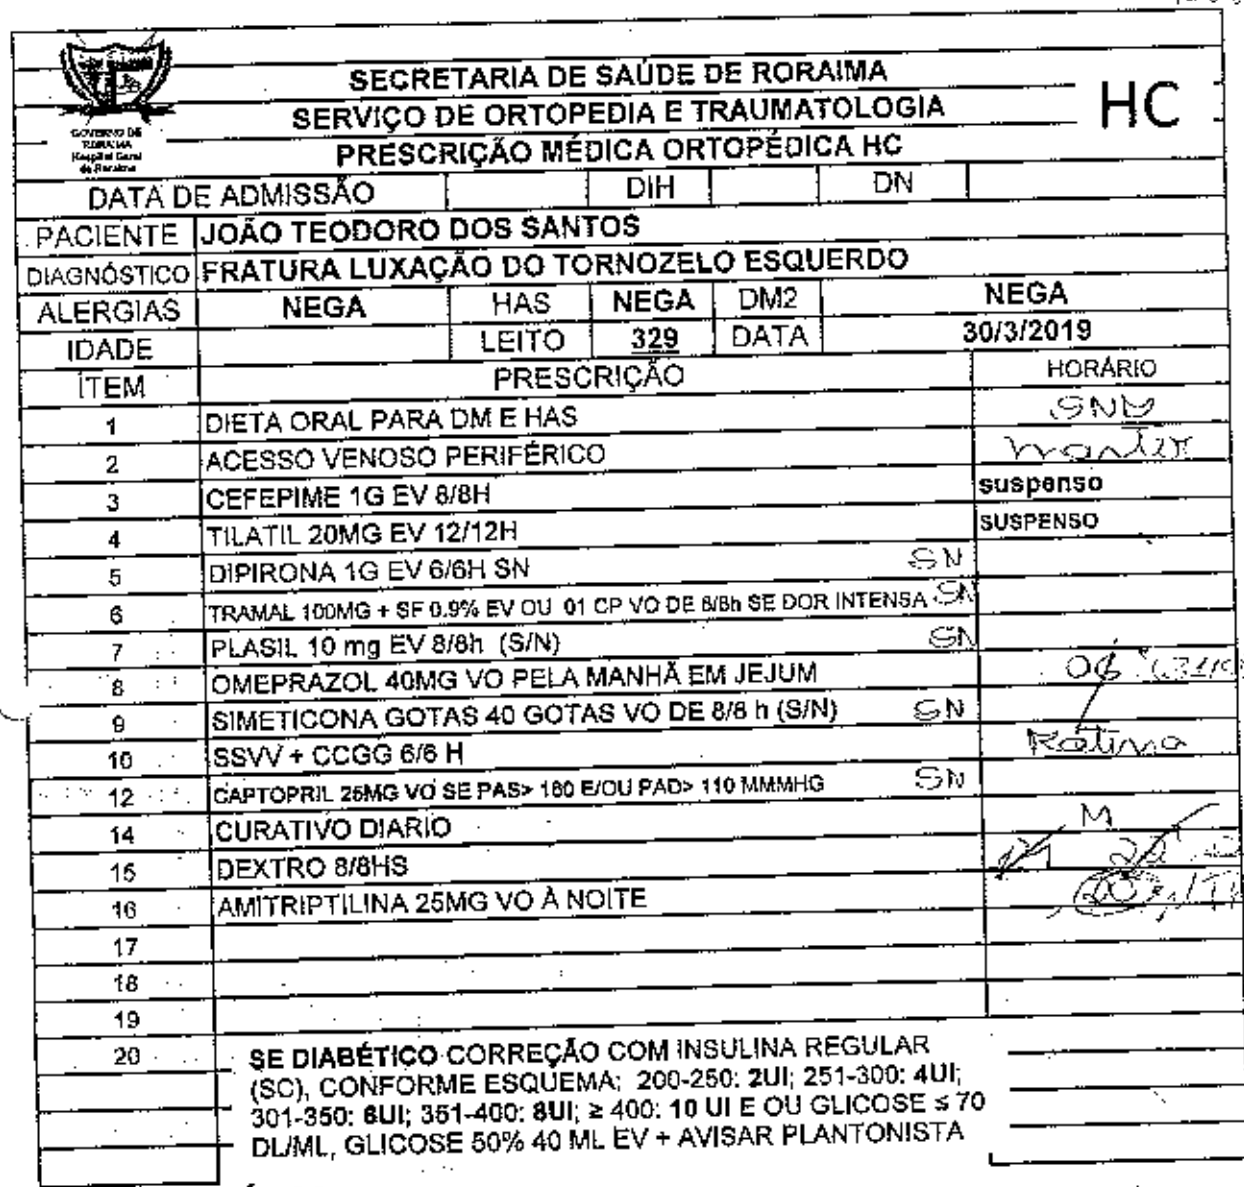 SECRETARIA DE SAÚDE DE RORAIMA
SERVIÇO DE ORTOPEDIA E TRAUMATOLOGIA
PRESCRIÇÃO MÉDICA ORTOPÉDICA HC
HC
GOVERNO DE
RORAIMA
Hospital Geral
de Roraima
DATA DE ADMISSÃO DIH DN
PACIENTE JOÃO TEODORO DOS SANTOS
DIAGNÓSTICO FRATURA LUXAÇÃO DO TORNOZELO ESQUERDO
ALERGIAS NEGA HAS NEGA DM2 NEGA
IDADE LEITO 329 DATA 30/3/2019
ÍTEM PRESCRIÇÃO HORÁRIO
1 DIETA ORAL PARA DM E HAS SND
2 ACESSO VENOSO PERIFÉRICO manter
3 CEFEPIME 1G EV 8/8H suspenso
4 TILATIL 20MG EV 12/12H SUSPENSO
5 DIPIRONA 1G EV 6/6H SN SN
6 TRAMAL 100MG + SF 0.9% EV OU 01 CP VO DE 8/8h SE DOR INTENSA SN
7 PLASIL 10 mg EV 8/8h (S/N) SN
8 OMEPRAZOL 40MG VO PELA MANHÃ EM JEJUM 06
9 SIMETICONA GOTAS 40 GOTAS VO DE 8/8 h (S/N) SN
10 SSVV + CCGG 6/6 H Rotina
12 CAPTOPRIL 25MG VO SE PAS> 160 E/OU PAD> 110 MMMHG SN
14 CURATIVO DIARIO M
15 DEXTRO 8/8HS 22
16 AMITRIPTILINA 25MG VO À NOITE
17
18
19
20 SE DIABÉTICO CORREÇÃO COM INSULINA REGULAR
(SC), CONFORME ESQUEMA: 200-250: 2UI; 251-300: 4UI;
301-350: 6UI; 351-400: 8UI; ≥ 400: 10 UI E OU GLICOSE ≤ 70
DL/ML, GLICOSE 50% 40 ML EV + AVISAR PLANTONISTA